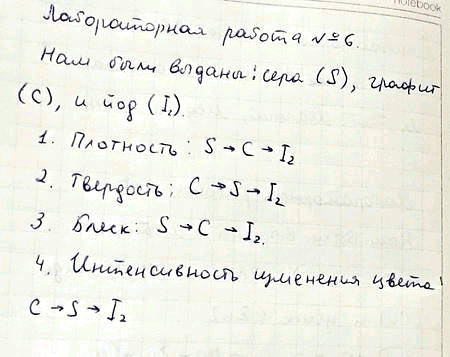 notebook
Лабораторная работа №6.
Нам были выданы: сера (S), графит
(C), и йод (I₂).
1. Плотность: S → C → I₂
2. Твердость: C → S → I₂
3. Блеск: S → C → I₂.
4. Интенсивность изменения цвета:
C → S → I₂